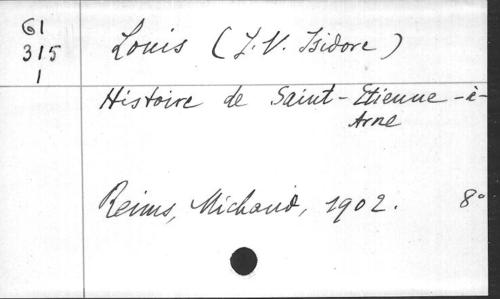 61
315
1
Louis (J. V. Isidore)
Histoire de Saint-Etienne-à-
Arne
Reims, Michaud, 1902. 8°